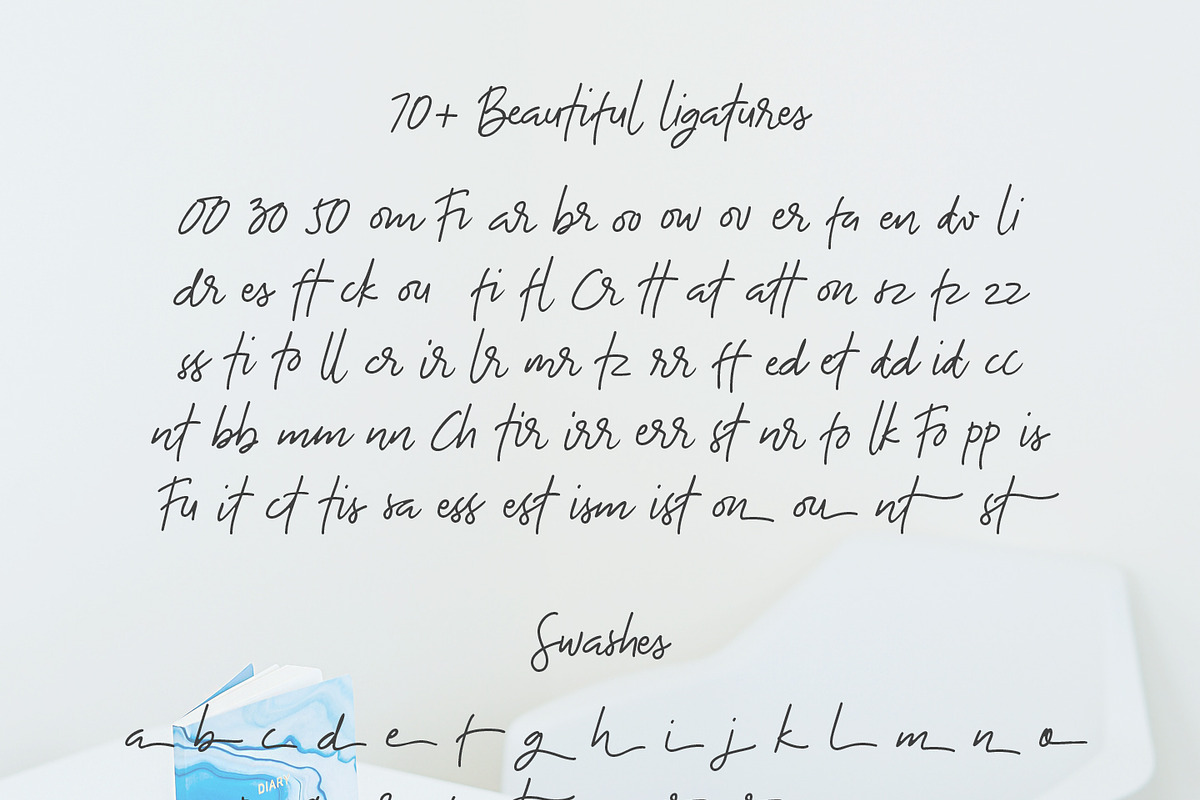 70+ Beautiful ligatures
00 30 50 om Fi ar br oo ow ov er fa en do li
dr es ft ck ou fi fl Cr tt at att on sz fz zz
ss ti to ll cr ir lr mr tz rr ff ed et dd id cc
nt bb mm nn Ch tir irr err st nr fo lk Fo pp is
Fu it ct tis sa ess est ism ist on ou nt st
Swashes
a b c d e f g h i j k l m n o
DIARY